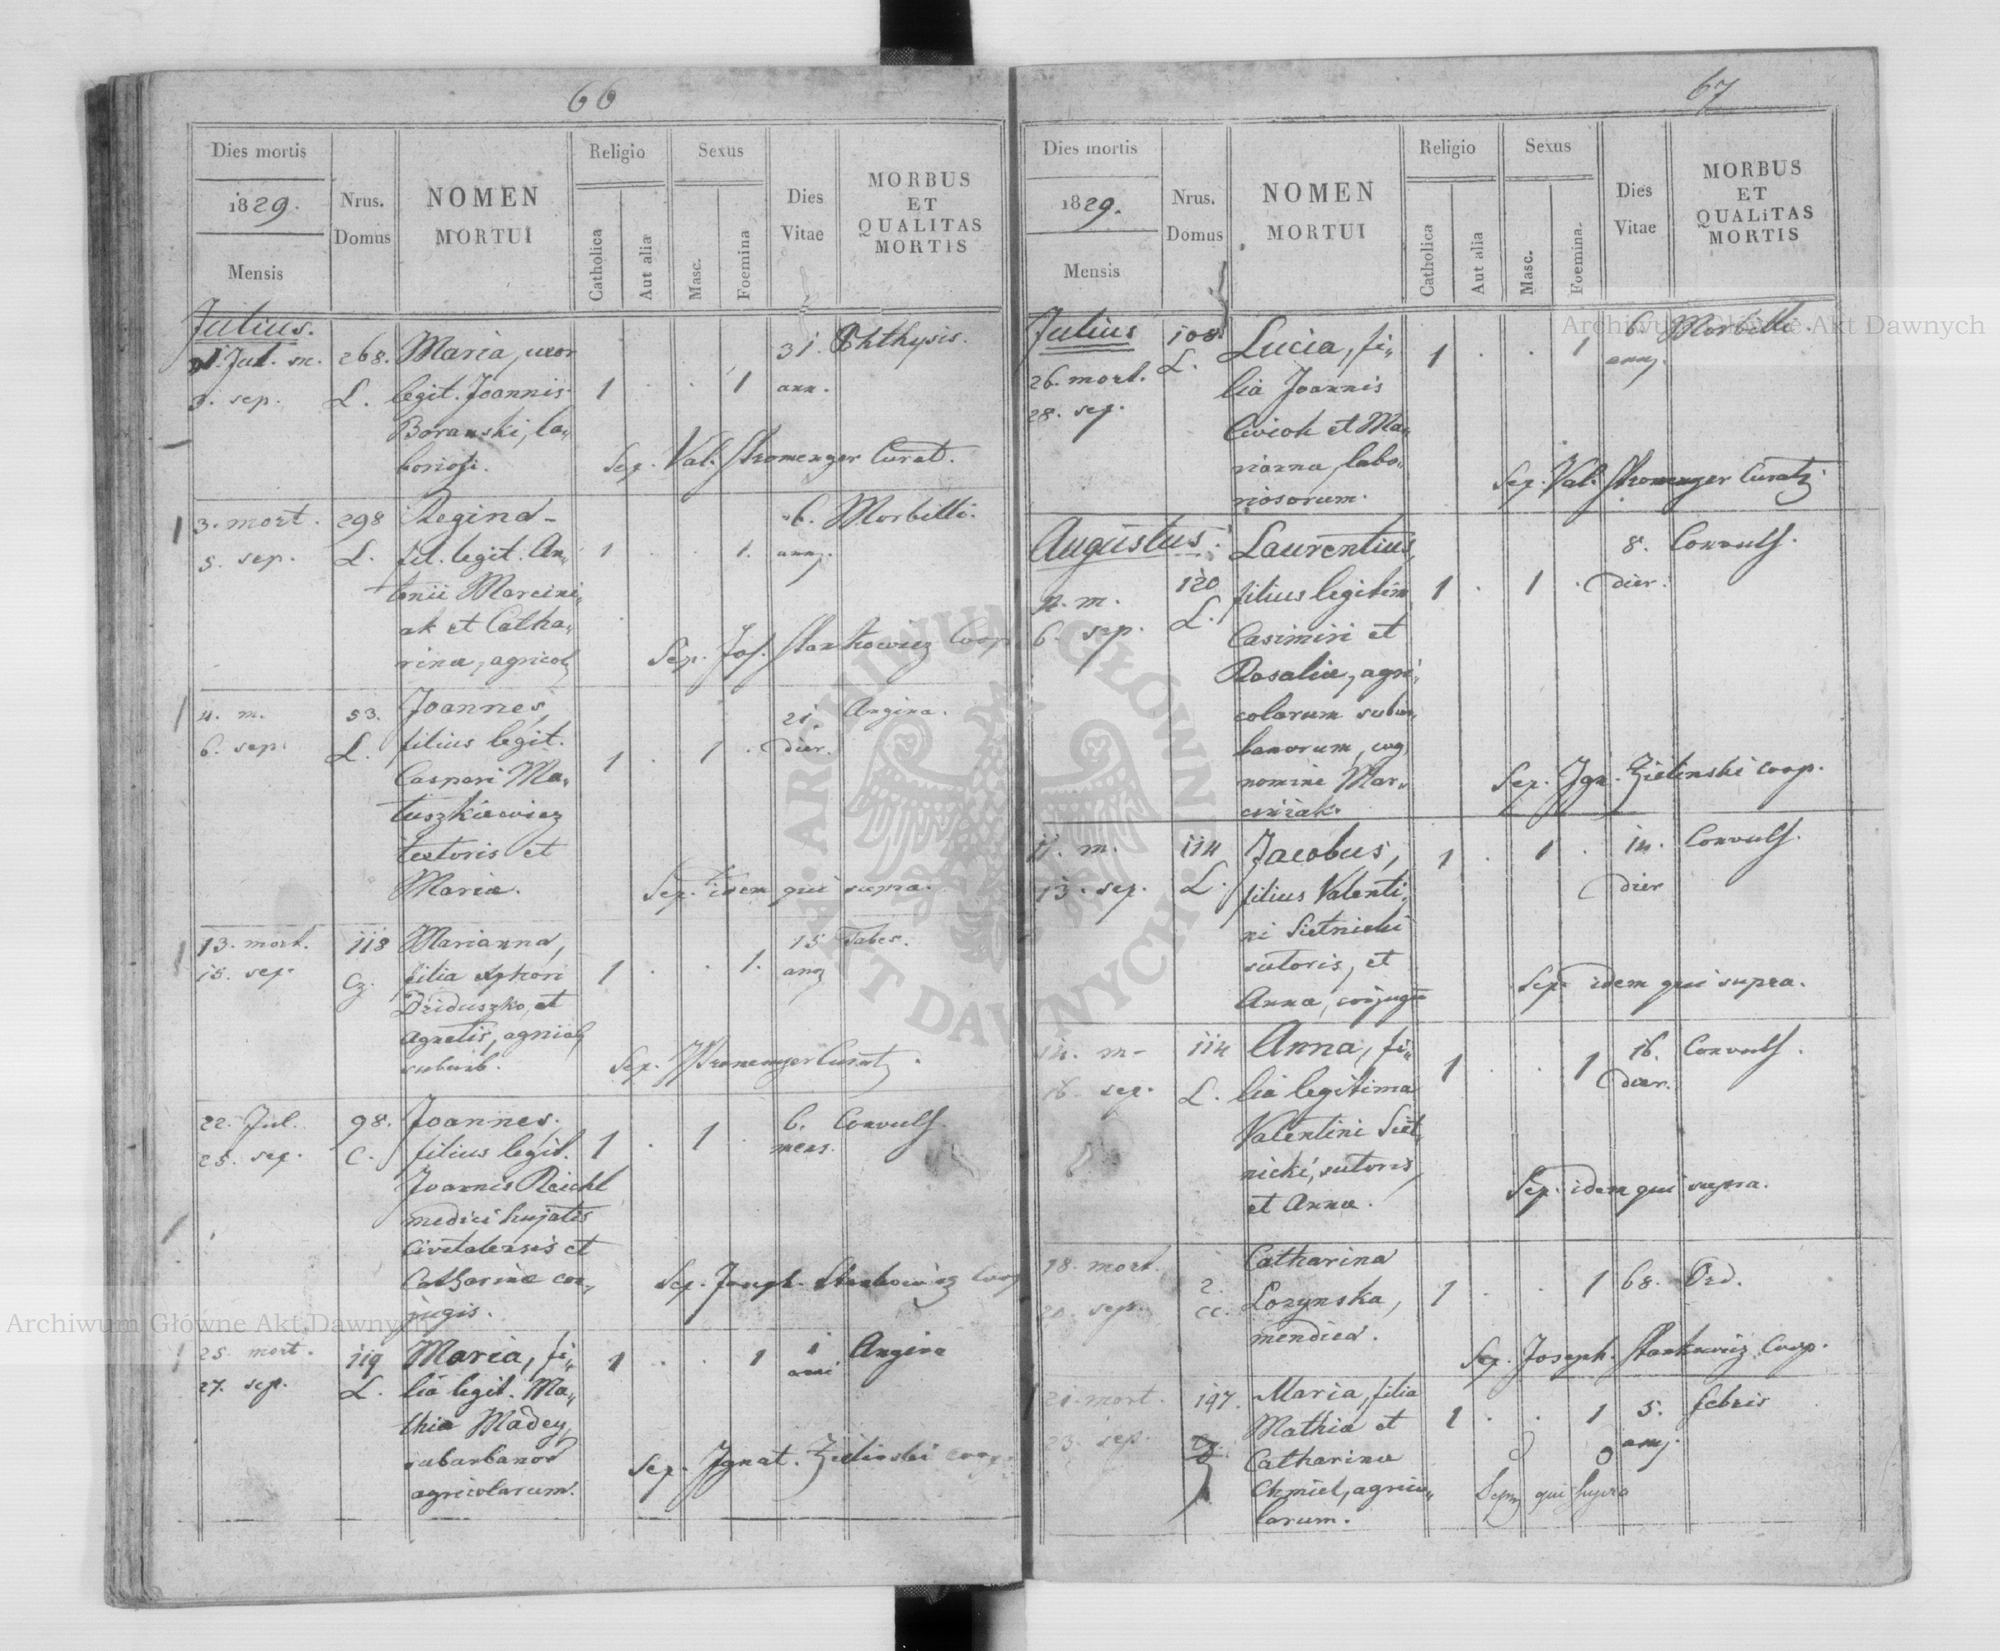 66
Dies mortis
1829.
Mensis
Nrus.
Domus
NOMEN
MORTUI
Religio
Catholica
Aut alia
Sexus
Masc.
Foemina
Dies
Vitae
MORBUS
ET
QUALITAS
MORTIS
Julius.
Jul. m. 268. Maria, uxor 31. Phthysis.
3. sep. L. legit. Joannis 1 . . 1 ann.
Boranski, la„
boriosi.
Sep. Val. Stromenger Curat.
3. mort. 298 Regina 6. Morbilli.
5. sep. L. fil. legit. An„ 1 . . 1. ann.
tonii Marcini„
ak et Catha„
rina, agricol.
Sep. Jos. Stankowicz Coop
4. m. 53. Joannes, 21. Angina.
6. sep. L. filius legit. 1 . 1 . dier.
Caspari Ma„
tuszkiewicz
textoris et
Maria.
Sep. idem qui supra.
13. mort. 118 Marianna, 15 Tabes.
15. sep. Cz. filia 1 . . 1. ann
Dziduszko, et
Agnetis, agricol
suburb.
Sep. Stromenger Curat.
22. Jul. 98. Joannes, 6. Convuls.
25. sep. C. filius legit. 1 . 1 . mens.
Joannis Reichl
medici hujatis
Civitatensis et
Catharina con„
jugis.
Sep. Joseph. Stankowicz Coop
25. mort. 119 Maria, fi„ 1 . . 1 1 Angina
27. sep. L. lia legit. Ma„ anni
thia Madey,
subarbanor
agricolarum.
Sep. Ignat. Zielinski coop.
67
Dies mortis
1829.
Mensis
Nrus.
Domus
NOMEN
MORTUI
Religio
Catholica
Aut alia
Sexus
Masc.
Foemina.
Dies
Vitae
MORBUS
ET
QUALiTAS
MORTIS
Julius 108 Lucia, fi„ 1 . . 1 6. Morbilli.
26. mort. L. lia Joannis ann.
28. sep. Cwiok et Ma„
rianna, labo„
riosorum.
Sep. Val. Stromenger Curat.
Augustus. Laurentius, 8. Convuls.
m. 120 filius legitim 1 . 1 . dier.
6. sep. L. Casimiri et
Rosalia, agri„
colarum subur„
banorum, cog
nomine Mar„
ciniak.
Sep. Ign. Zielinski coop.
11. m. 114 Jacobus, 1 . 1 . 14. Convuls.
13. sep. L. filius Valenti„ dier
ni Sietnicki
sutoris, et
Anna, conjugu
Sep. idem qui supra.
14. m. 114 Anna, fi„ 1 . . 1 16. Convuls.
16. sep. L. lia legitima dier.
Valentini Siet„
nicki, sutoris,
et Anna.
Sep. idem qui supra.
18. mort. 2. Catharina
20. sep. CC. Lozynska, 1 . . 1 68. Ord.
mendica.
Sep. Joseph. Stankowicz Coop.
21. mort. 197. Maria, filia 1 . . 1 5. febris
23. sep. Cz. Mathia et ann.
Catharina
Chmiel, agrico„
larum.
qui supra
ARCHIWUM GŁÓWNE AKT DAWNYCH
Archiwum Główne Akt Dawnych
Archiwum Główne Akt Dawnych